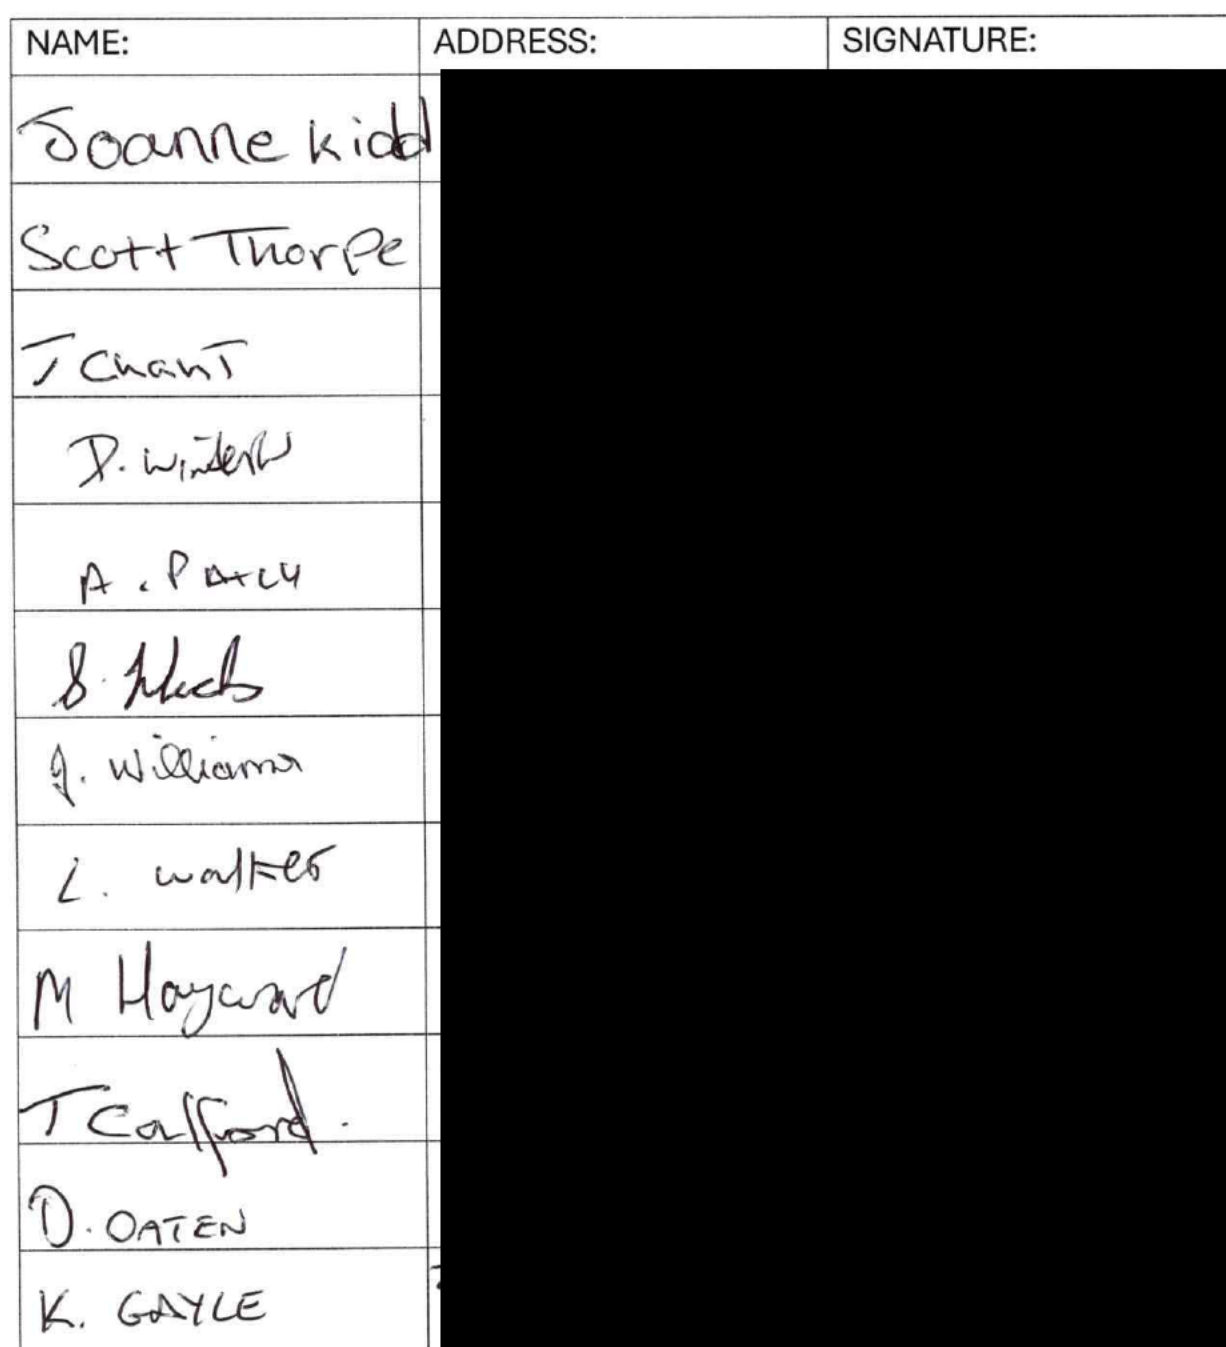 NAME: ADDRESS: SIGNATURE:
Joanne Kidd
Scott Thorpe
J Chant
D.
A. PATCH
S.
J. Williams
L. Walker
M Hayward
T Calfford.
D. OATEN
K. GAYLE